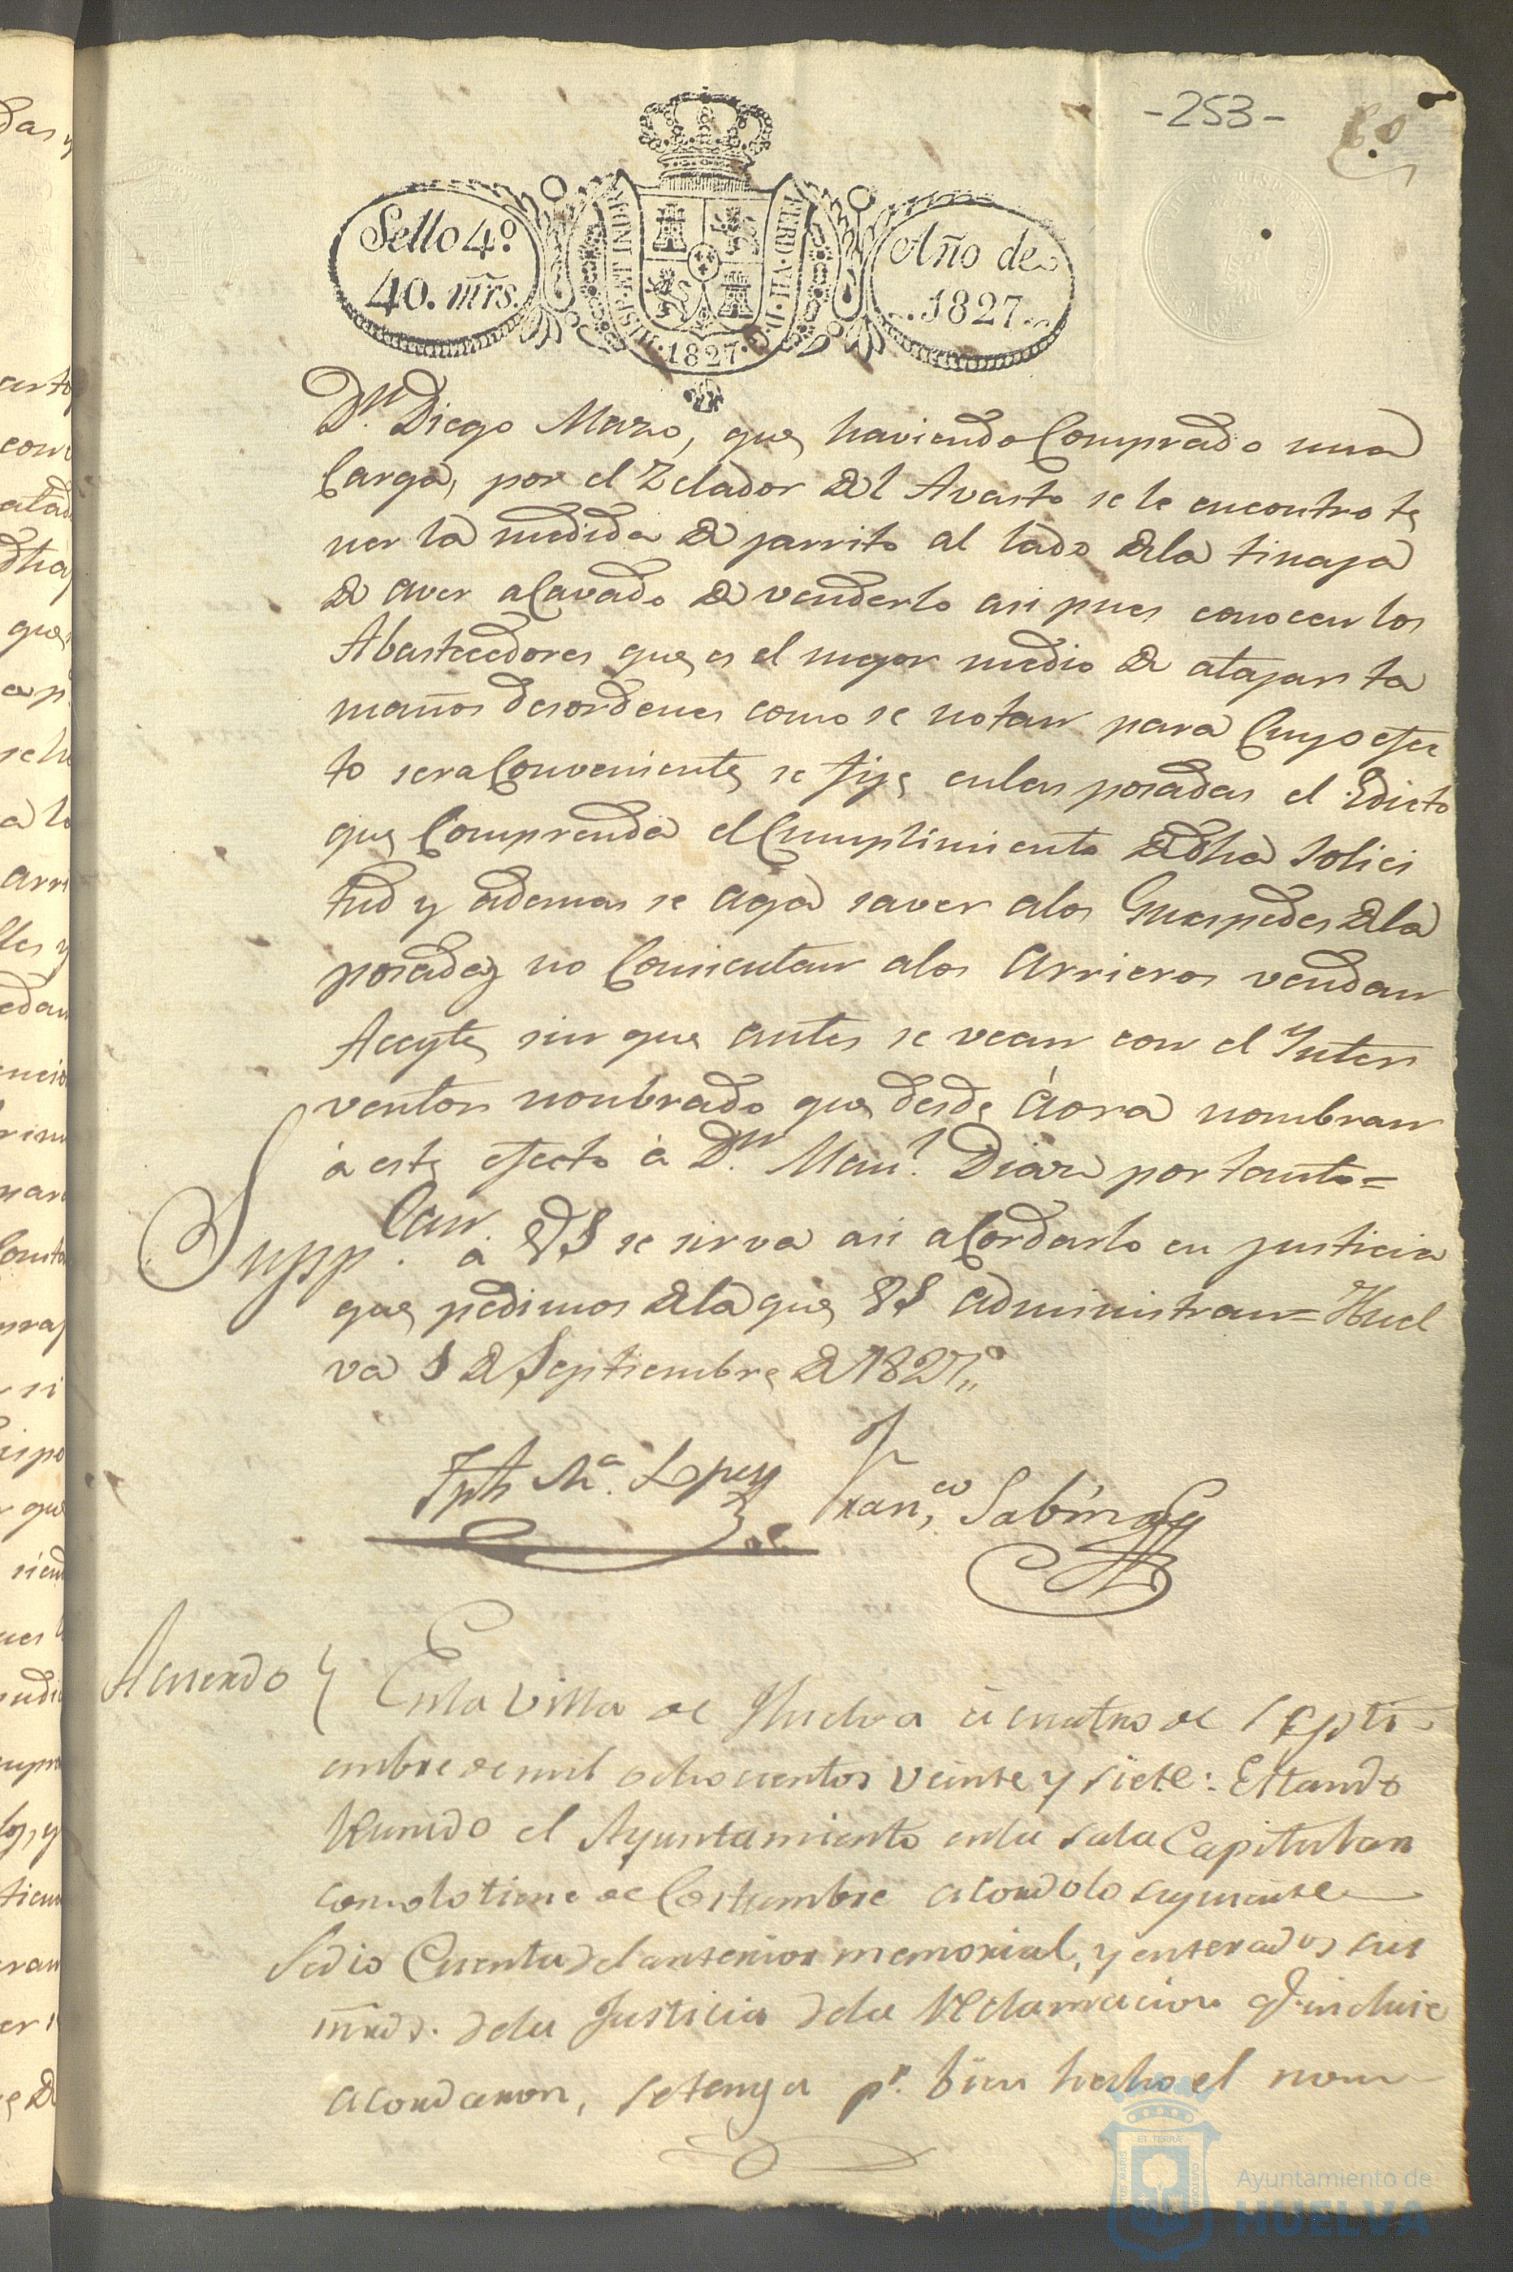 -253-
Sello 4º
40. mrs.
FERD · VII · D · G
HISP · ET IND · R
· 1827 ·
Año de
1827
Dn. Diego Mazo, que haviendo Comprado una
Carga, por el Zelador del Avasto se le encontro te
ner la medida de jarrito al lado dela tinaja
de aver acavado de venderlo asi pues conocen los
Abastecedores que es el mejor medio de atajar ta
maños desordenes como se notan para Cuyo efec
to sera Conveniente se fije enlas posadas el Edicto
que Comprenda el Cumplimiento de dha solici
tud y ademas se aga saver alos Guespedes dela
posadas no Consientan alos Arrieros vendan
Aceyte sin que antes se vean con el Inter
ventor nonbrado que desde áora nombran
á este efecto á Dn. Manl. Diaz por tanto=
Suppcan. a VS se sirva asi acordarlo en justicia
que pedimos dela que VS administran= Huel
va 1 de Septiembre de 1827,,
Jph Ma. Lopez
Franco, Sabina
Acuerdo
Enla Villa de Huelva á cuatro de Septi
embre de mil ochocientos veinte y siete: Estando
Runido el Ayuntamiento enla sala Capitular
como lo tiene de Costumbre acordo lo siguiente
Se dio Cuenta del anterior memorial, y enterados sus
mrds. dela Justicia dela Reclamacion q. incluie
acordaron, se tenga pr. bien hecho el nom
ET TERRÆ
Ayuntamiento de
HUELVA